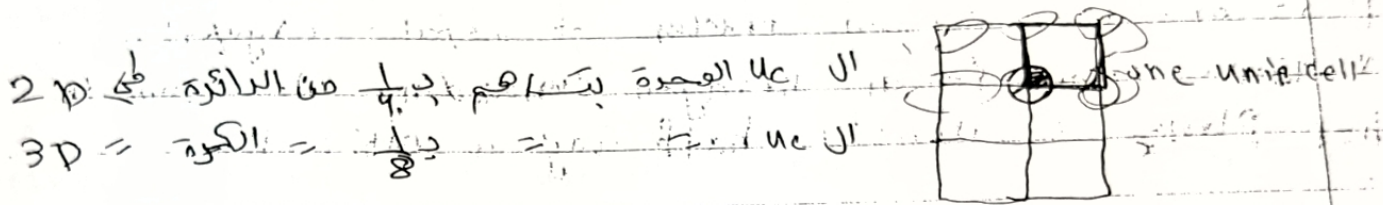 ال uc الوحدة بتساهم بـ 1/4 من الدائرة في 2D
ال uc = = بـ 1/8 = الكرة = 3D
one unit cell